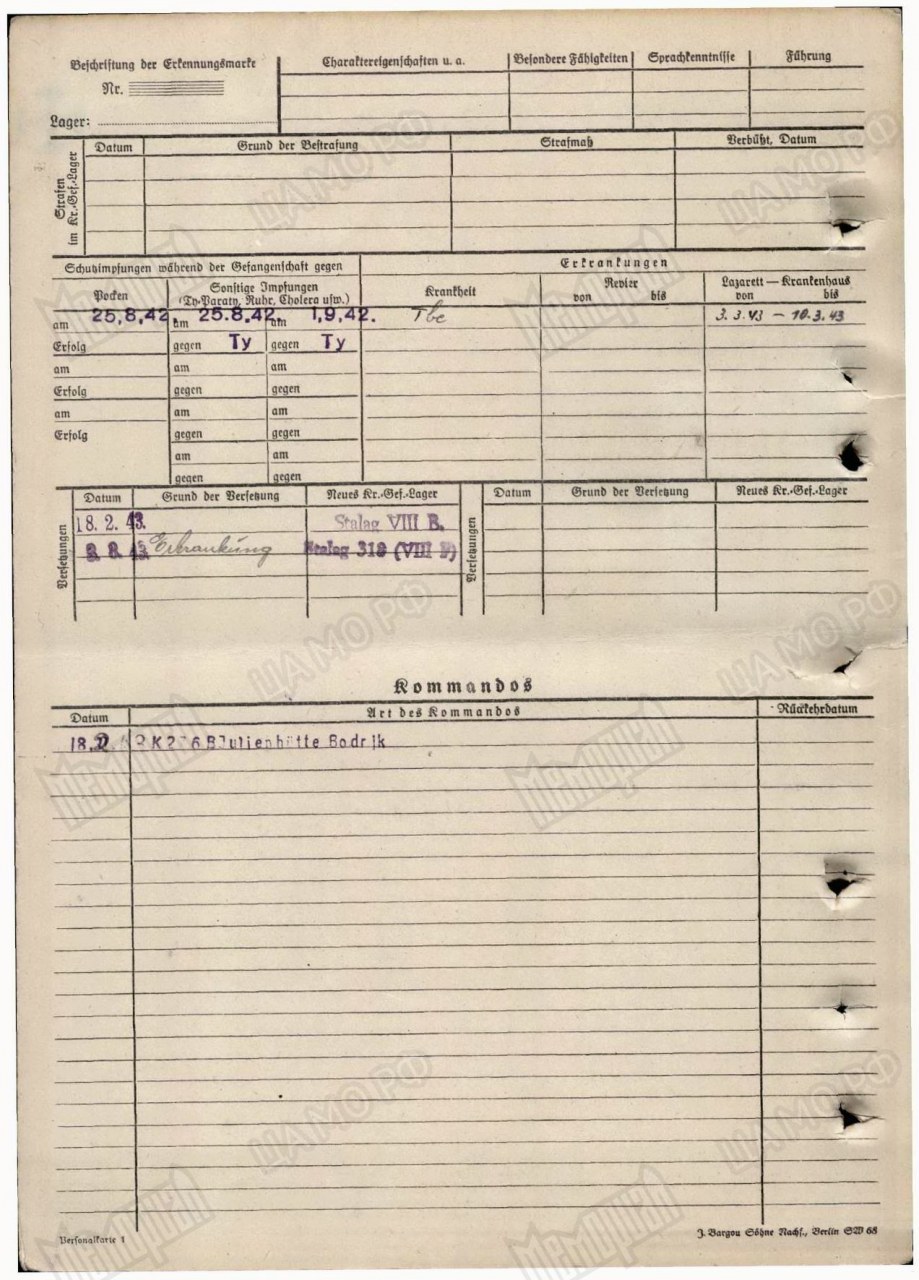 Beschriftung der Erkennungsmarke
Nr.
Lager:
Charaktereigenschaften u. a.
Besondere Fähigkeiten
Sprachkenntnisse
Führung
Strafen im Kr.-Gef.-Lager
Datum
Grund der Bestrafung
Strafmaß
Verbüßt, Datum
Schutzimpfungen während der Gefangenschaft gegen
Erkrankungen
Pocken
Sonstige Impfungen
(Ty-Paraty, Ruhr, Cholera usw.)
Krankheit
Revier
von bis
Lazarett — Krankenhaus
von bis
am 25,8,42. am 25.8.42. am 1,9,42. Tbc 3.3.43 – 10.3.43
Erfolg gegen Ty gegen Ty
am am am
Erfolg gegen gegen
am am am
Erfolg gegen gegen
am am
gegen gegen
Versetzungen
Datum Grund der Versetzung Neues Kr.-Gef.-Lager
18. 2. 43. Stalag VIII B.
Erkrankung Stalag 318 (VIII F)
Versetzungen
Datum Grund der Versetzung Neues Kr.-Gef.-Lager
Kommandos
Datum Art des Kommandos Rückkehrdatum
18. Julienhütte Bodrik
Personalkarte 1
J. Bargou Söhne Nachf., Berlin SW 68
ЦАМО РФ
Мемориал
ЦАМО РФ
Мемориал
ЦАМО РФ
ЦАМО РФ
Мемориал
Мемориал
ЦАМО РФ
ЦАМО РФ
Мемориал
Мемориал